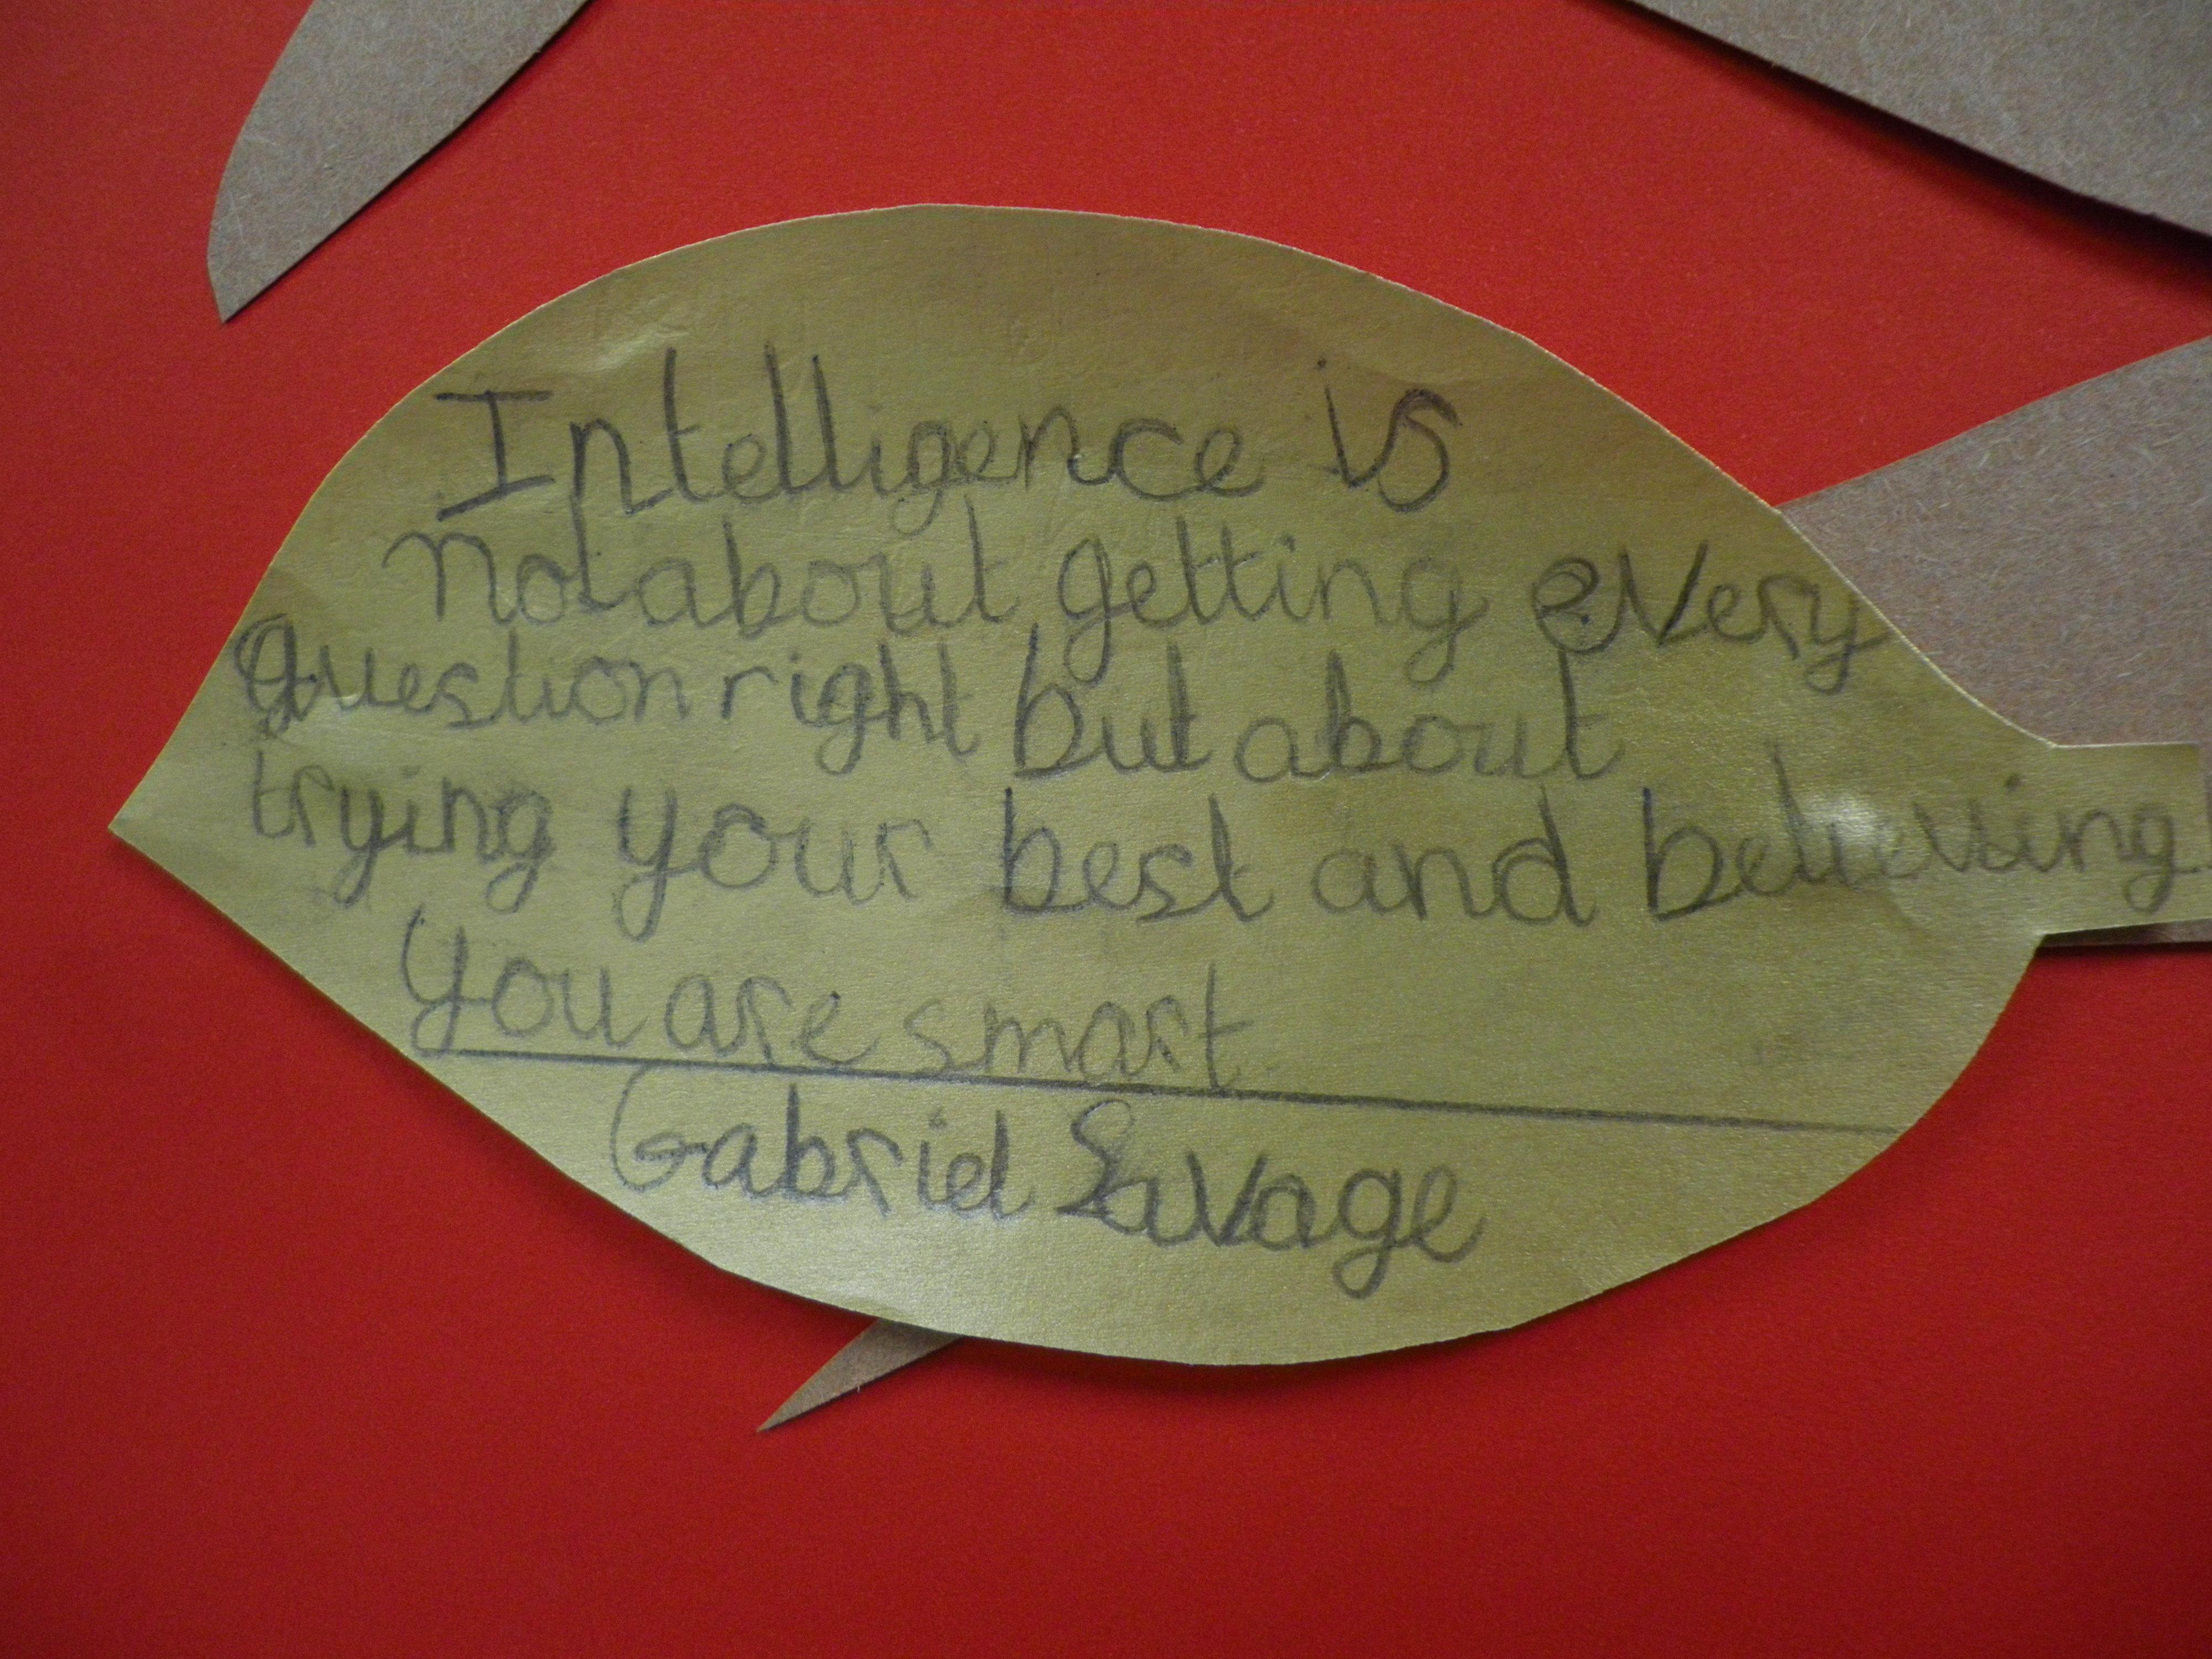 Intelligence is
not about getting every
Question right but about
trying your best and believing
you are smart.
Gabriel Savage